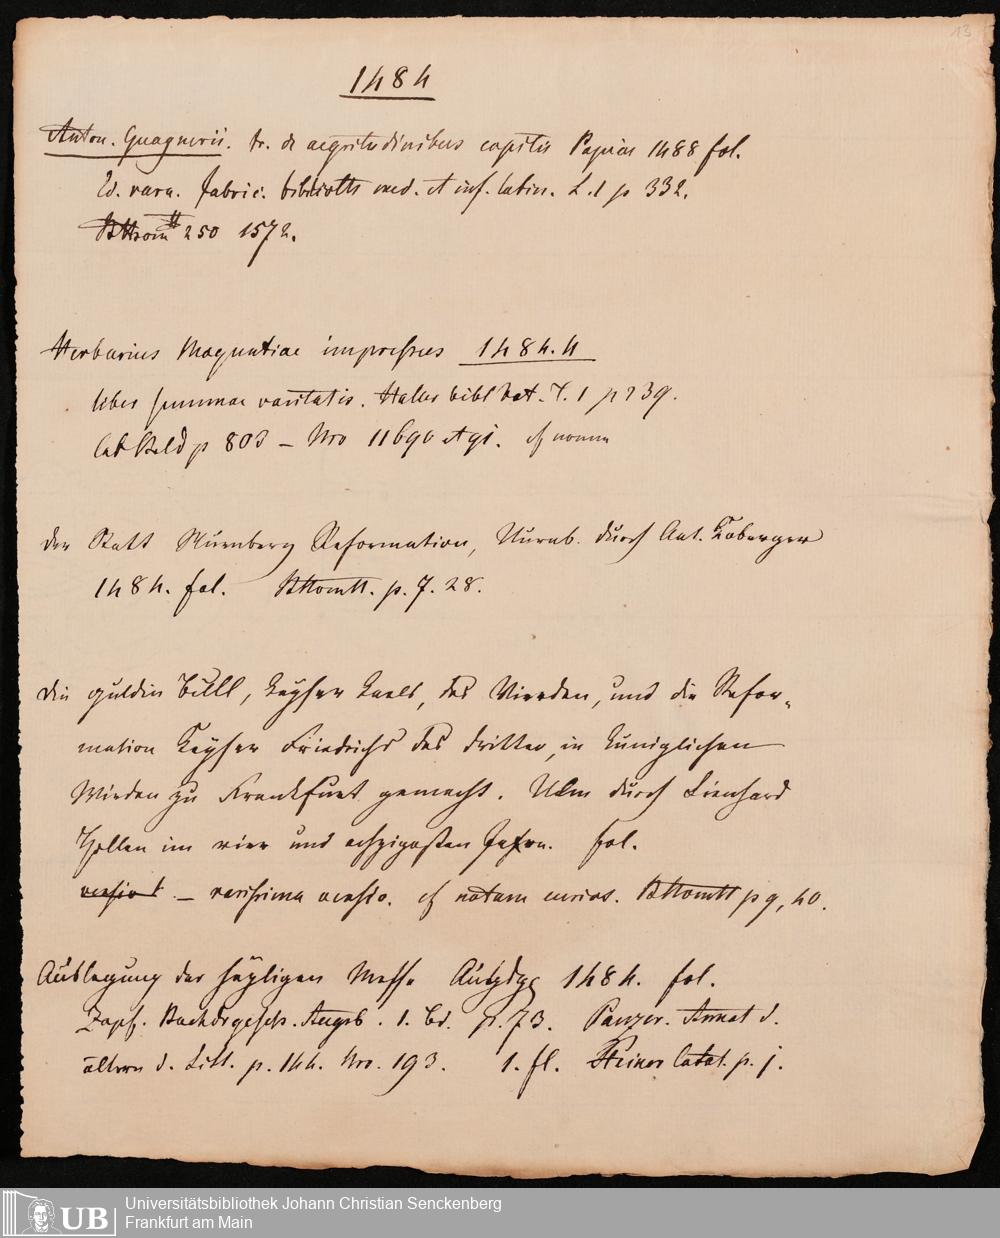 13
1484
Anton. Guagnerii. tr. de aegritudinibus capitis Papiae 1488 fol.
Ed. rara. Fabric. biblioth med. et inf. latin. L. 1 p 332.
250 1572.
Herbarius Maguntiae impressus 1484. 4
liber summae raritatis. Haller bibl bot. T. 1 p 239.
p 803 – Nro 11690 et 91. cf
der Statt Nurmberg Reformation, Nurnb. durch Ant. Koberger
1484. fol. p. 7. 28.
die guldin Bull, Keyser Karls, des Vierden, und die Refor-
mation Keyser Friedrichs des dritten, in kuniglichen
Wirden zu Frankfurt gemacht. Ulm durch Lienhard
Hollen im vier und achzigosten Jahren. fol.
– rarissima editio. cf notam p 9, 40.
Auslegung der heyligen Messe Augsbg 1484. fol.
Zapf. Buchdrgesch. Augsb. 1. Bd. p. 73. Panzer. Annal d.
ältern d. Litt. p. 144. Nro. 193. 1. fl. Catal. p. j.
Universitätsbibliothek Johann Christian Senckenberg
UB Frankfurt am Main